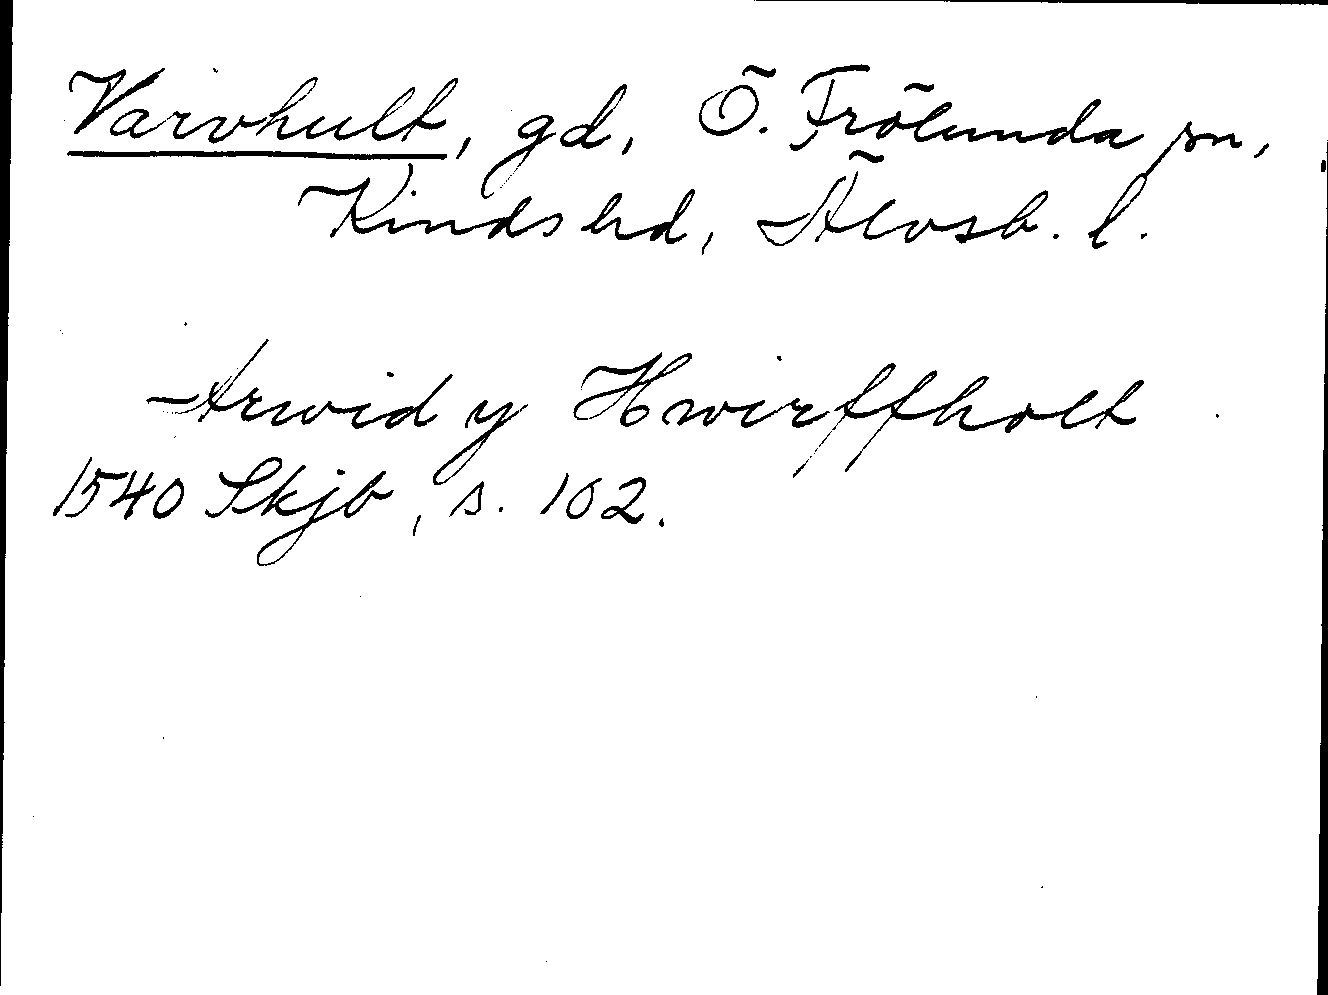 Varvhult, gd, Ö. Frölunda sn,
Kinds hd, Älvsb. l.
Arwid y Hwirffholt
1540 Skjb, s. 102.